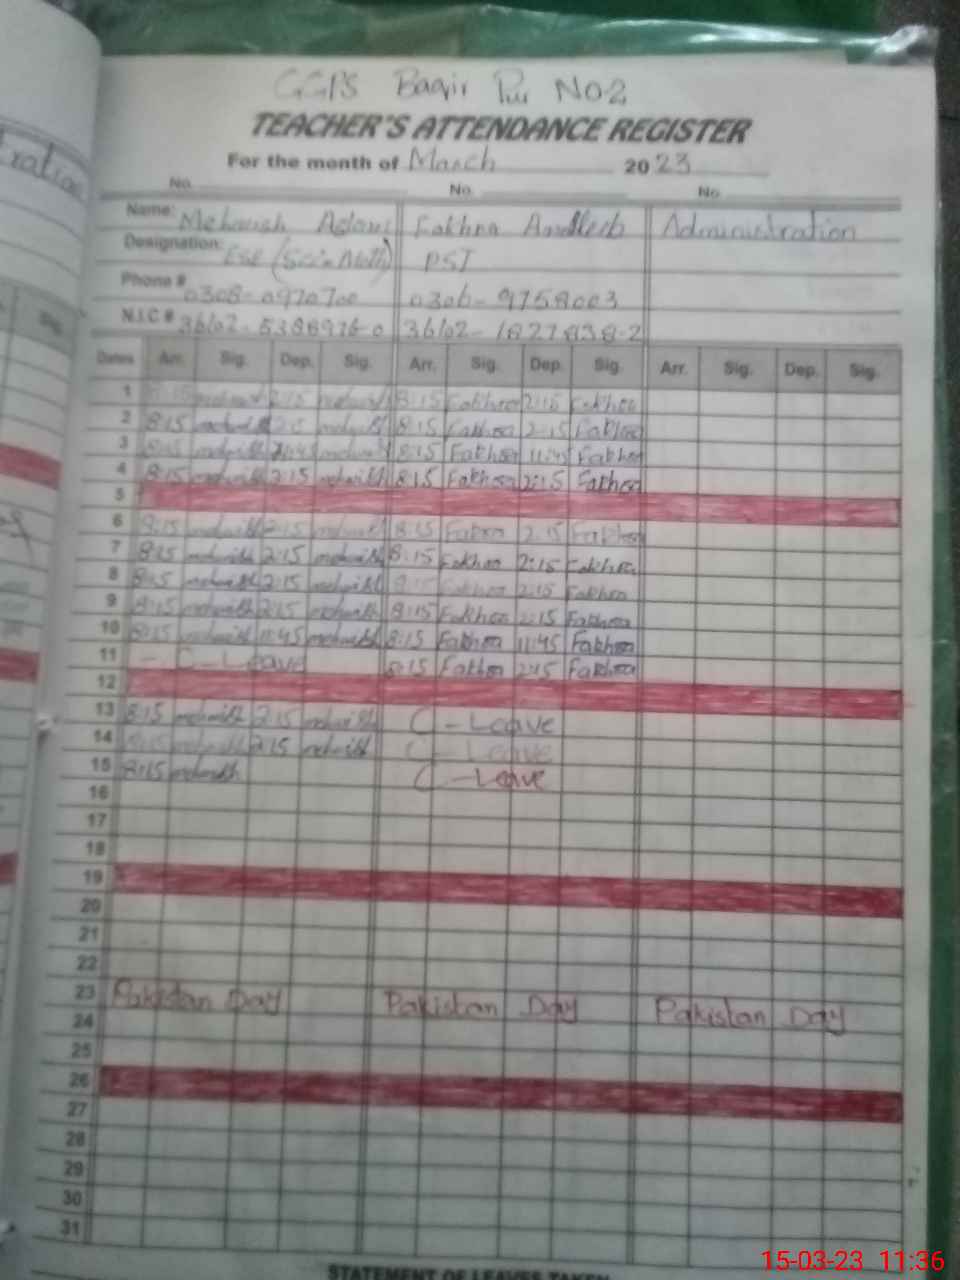 GGPS Baqir Pur No 2
TEACHER'S ATTENDANCE REGISTER
For the month of March 2023
No. No. No.
Name: Mehwish Aslam Fakhra Andleeb Administration
Designation: ESE (Sci-Math) PST
Phone # 0306-9758003
N.I.C # 36102-1827838-2
Dates Arr. Sig. Dep. Sig. Arr. Sig. Dep. Sig. Arr. Sig. Dep. Sig.
1 8:15 mehwish 2:15 mehwish 8:15 Fakhra 2:15 Fakhra
2 8:15 mehwish mehwish 8:15 Fakhra 2:15 Fakhra
3 8:15 mehwish mehwish 8:15 Fakhra 11:45 Fakhra
4 8:15 mehwish 2:15 mehwish 8:15 Fakhra 2:15 Fakhra
5
6 8:15 mehwish 2:15 mehwish 8:15 Fakhra 2:15 Fakhra
7 8:15 mehwish 2:15 mehwish 8:15 Fakhra 2:15 Fakhra
8 8:15 mehwish 2:15 mehwish 8:15 Fakhra 2:15 Fakhra
9 8:15 mehwish 2:15 mehwish 8:15 Fakhra 2:15 Fakhra
10 8:15 mehwish 11:45 mehwish 8:15 Fakhra 11:45 Fakhra
11 - C-Leave 8:15 Fakhra Fakhra
12
13 8:15 mehwish 2:15 mehwish C - Leave
14 8:15 mehwish 2:15 mehwish C - Leave
15 8:15 mehwish C - Leave
16
17
18
19
20
21
22
23 Pakistan Day Pakistan Day Pakistan Day
24
25
26
27
28
29
30
31
STATEMENT OF LEAVES TAKEN
15-03-23 11:36